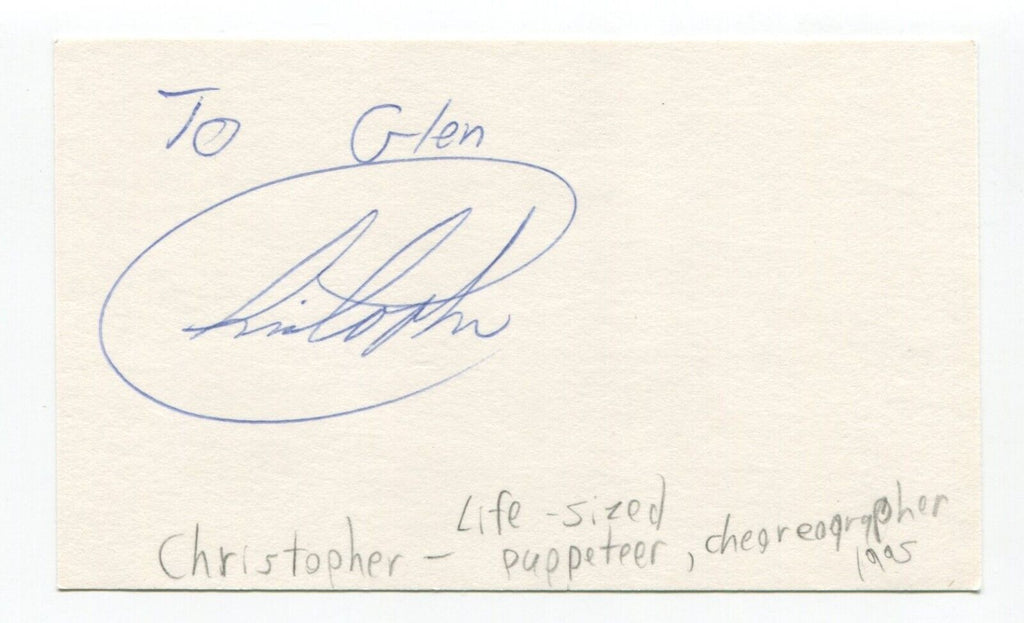 To Glen
Christopher
Life-sized
Christopher - puppeteer, cheoreographer
1995